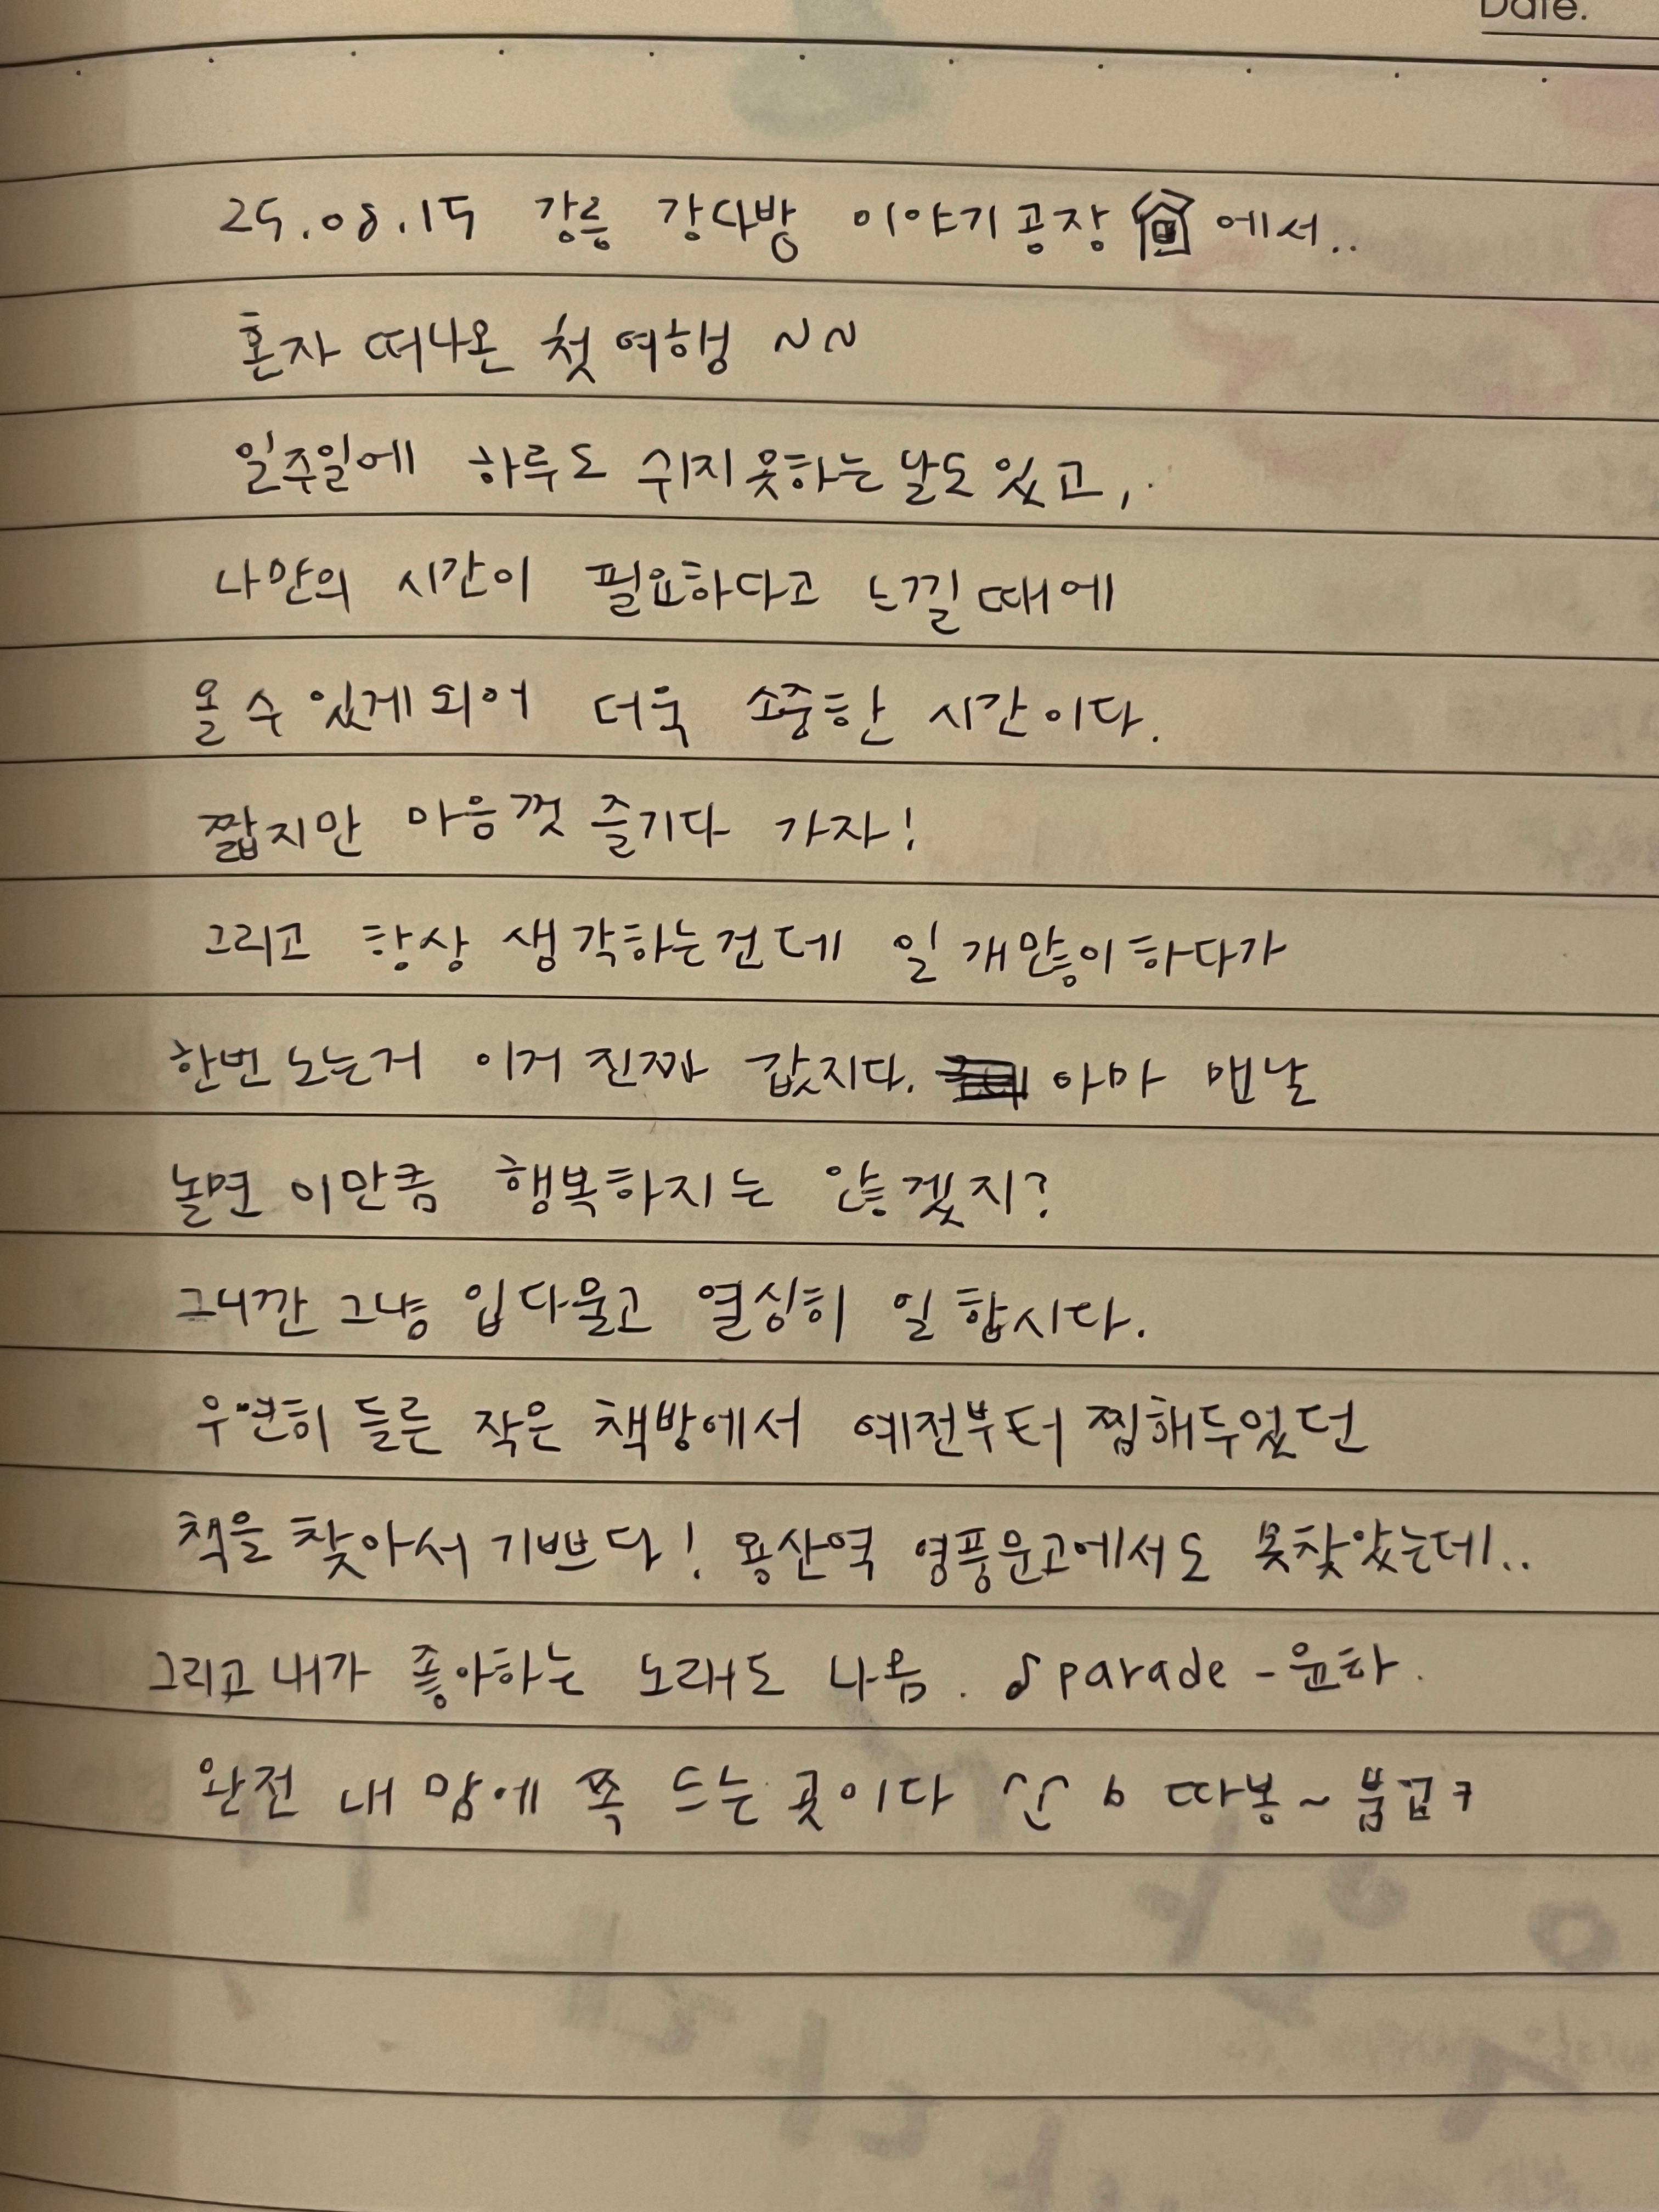 Date.
25.08.15 강릉 강다방 이야기공장 에서..
혼자 떠나온 첫 여행 ~~
일주일에 하루도 쉬지 못하는 날도 있고,
나만의 시간이 필요하다고 느낄 때에
올 수 있게 되어 더욱 소중한 시간이다.
짧지만 마음껏 즐기다 가자!
그리고 항상 생각하는건데 일 개많이 하다가
한번 노는거 이거 진짜 값지다. 아마 맨날
놀면 이만큼 행복하지는 않겠지?
그니깐 그냥 입다물고 열심히 일 합시다.
우연히 들른 작은 책방에서 예전부터 찜해두었던
책을 찾아서 기쁘다! 용산역 영풍문고에서도 못찾았는데..
그리고 내가 좋아하는 노래도 나옴. ♪ parade - 윤하.
완전 내 맘에 쏙 드는 곳이다 따봉~